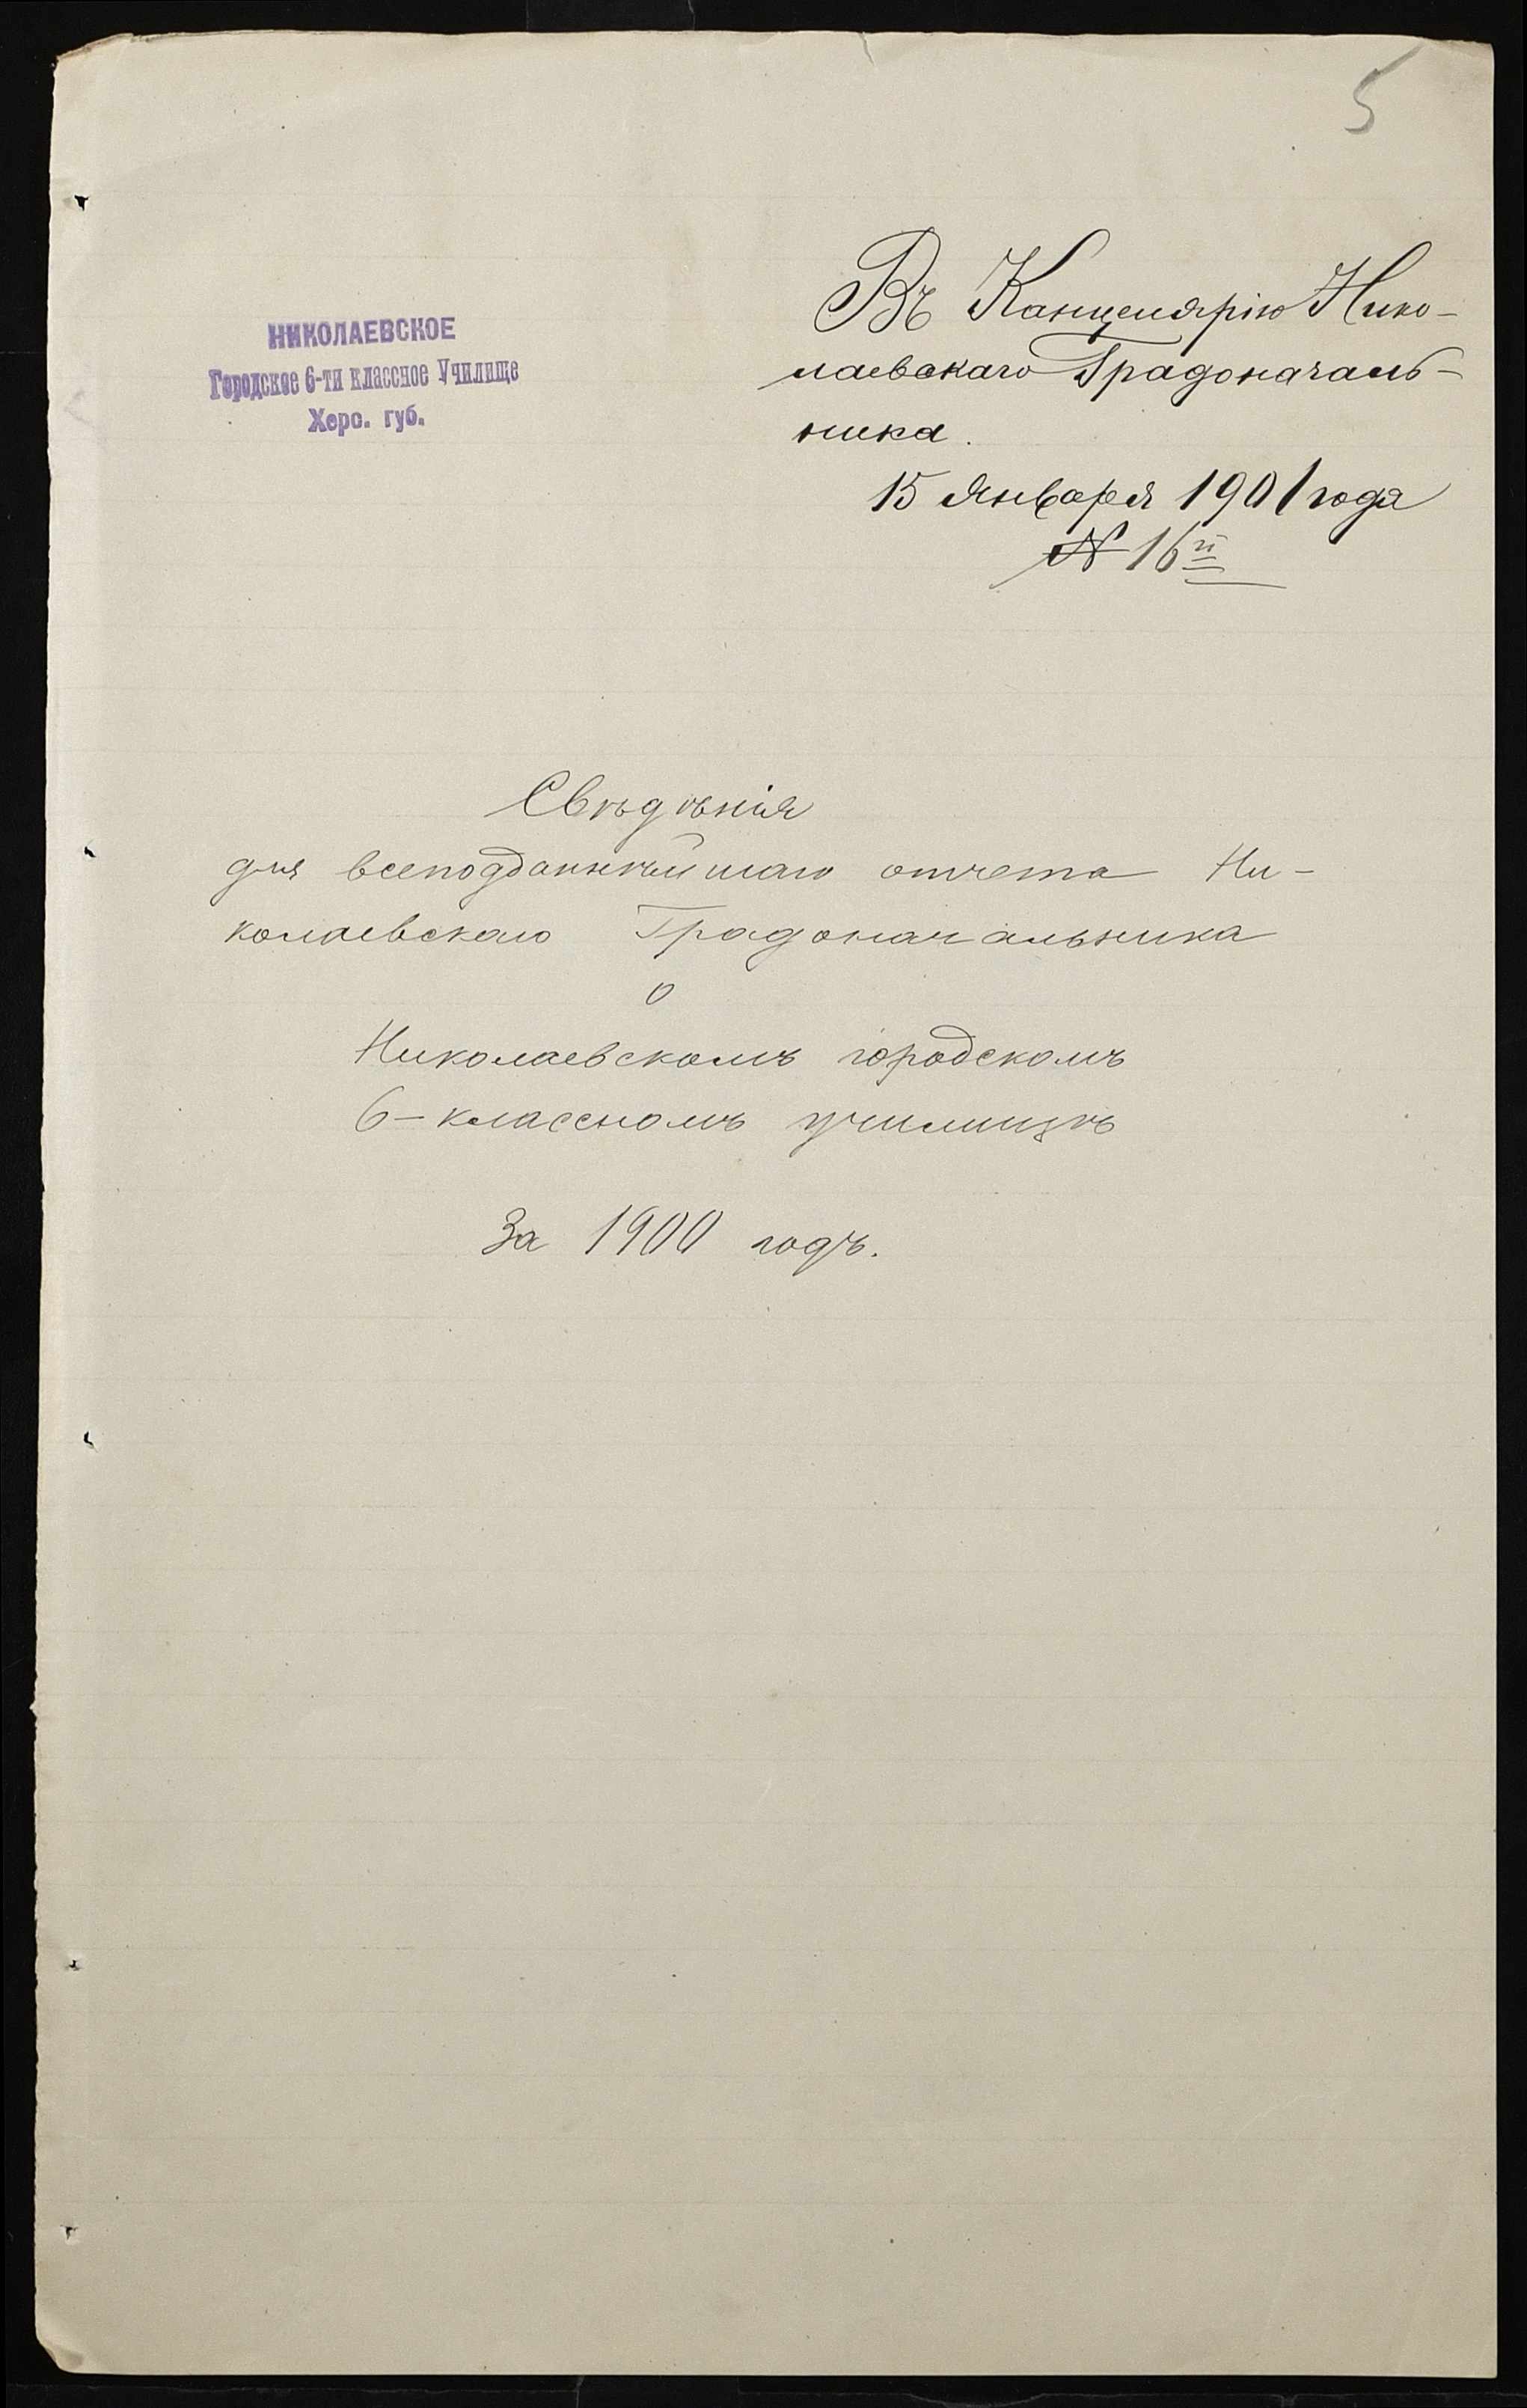 5
НИКОЛАЕВСКОЕ
Городское 6-ти классное Училище
Херс. губ.
Въ Канцелярію Нико-
лаевскаго Градоначаль-
ника.
15 Января 1901 года
№ 16й
Свѣдѣнія
для всеподданнѣйшаго отчета Ни-
колаевскаго Градоначальника
о
Николаевскомъ городскомъ
6-классномъ училищѣ
За 1900 годъ.